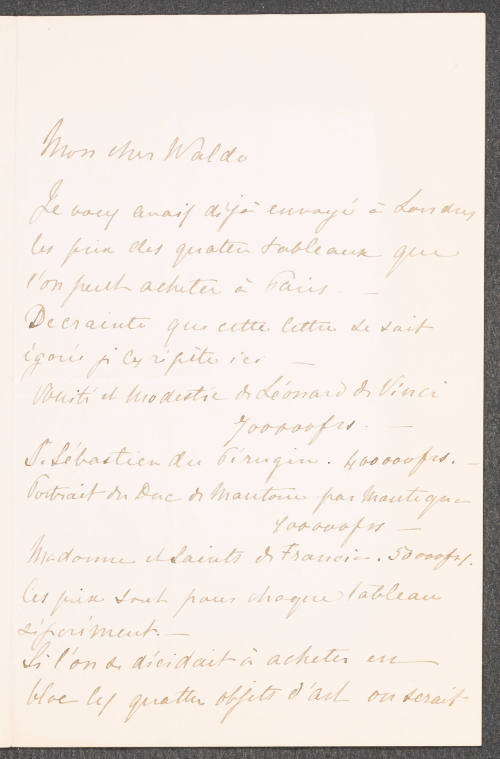 Mon cher Waldo
Je vous avais déjà envoyé à Londres
les prix des quatre tableaux que
l'on peut acheter à Paris. —
De crainte que cette lettre se soit
égarée je les répète ici —
Vanité et Modestie de Léonard de Vinci
700000frs. —
St. Sébastien du Pérugin. 400000frs. —
Portrait du Duc de Mantoue par Mantegna
400000frs —
Madonne et Saints de Francia. 50000frs.
Ces prix sont pour chaque tableau
séparément. —
Si l'on se décidait à acheter en
bloc les quatre objets d'art on serait